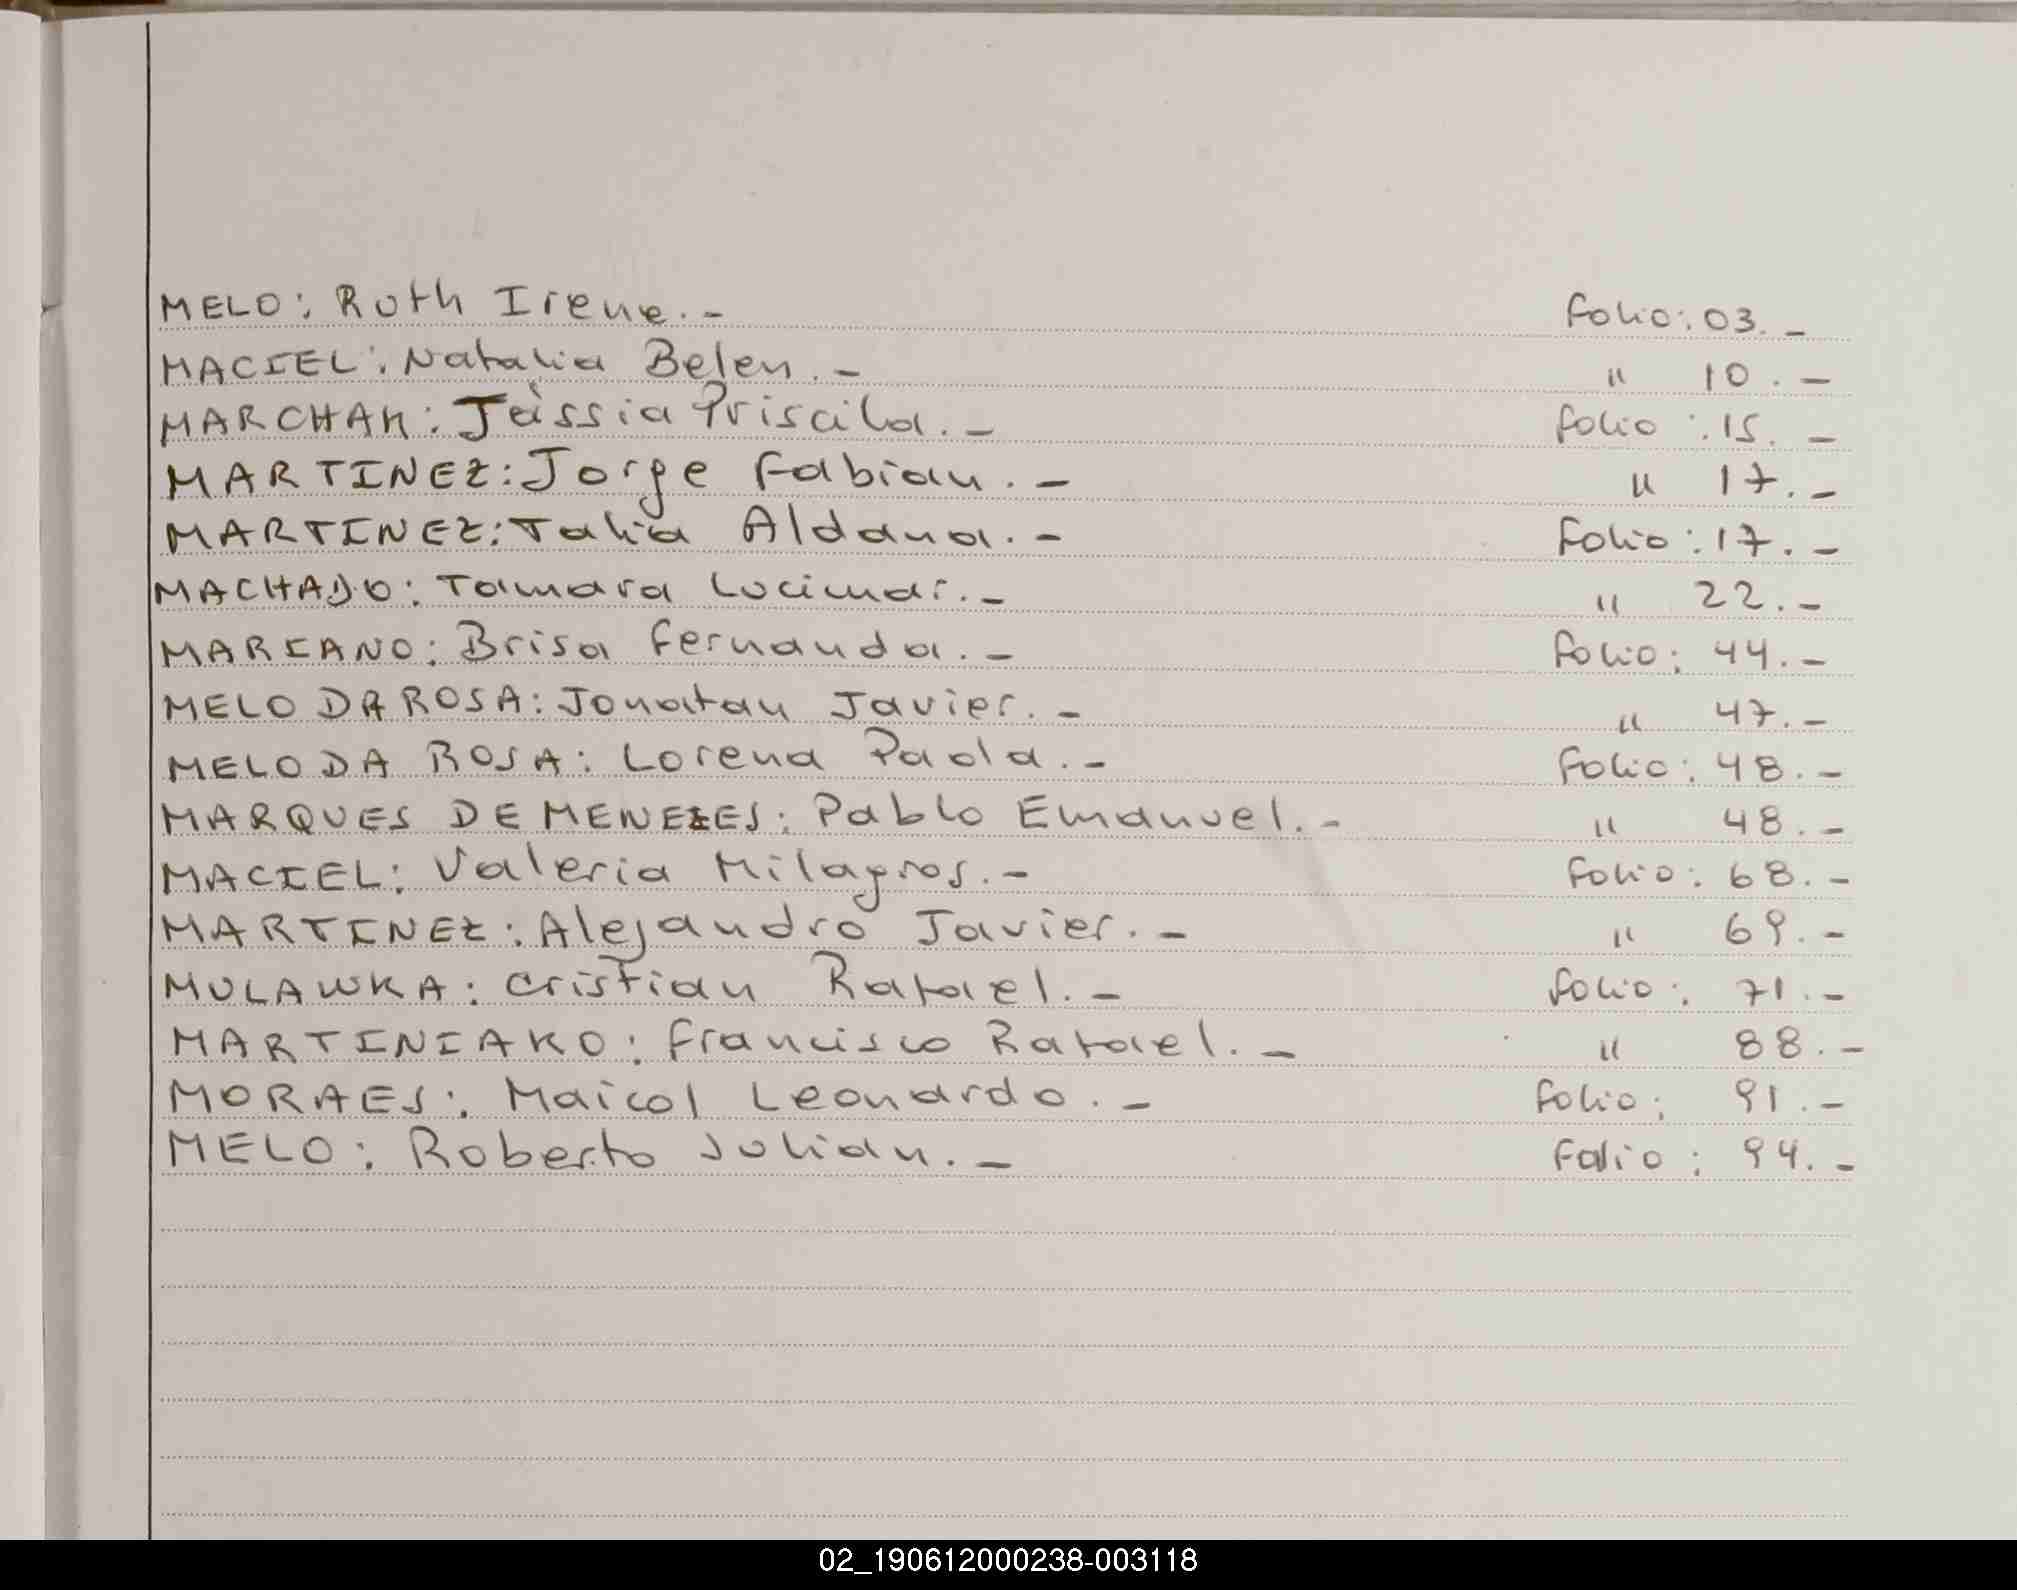 MELO: Ruth Irene.- Folio: 03.-
MACIEL: Natalia Belen.- " 10.-
MARCHAK: Jéssia Priscila.- Folio: 15.-
MARTINEZ: Jorge Fabian.- " 17.-
MARTINEZ: Talia Aldana.- Folio: 17.-
MACHADO: Tamara Lucimar.- " 22.-
MARCANO: Brisa Fernanda.- Folio: 44.-
MELO DA ROSA: Jonatan Javier.- " 47.-
MELO DA ROSA: Lorena Paola.- Folio: 48.-
MARQUES DE MENEZES: Pablo Emanuel.- " 48.-
MACIEL: Valeria Milagros.- Folio: 68.-
MARTINEZ: Alejandro Javier.- " 69.-
MULAWKA: Cristian Rafael.- Folio: 71.-
MARTINIAKO: Francisco Rafael.- " 88.-
MORAES: Maicol Leonardo.- Folio: 91.-
MELO: Roberto Julian.- Folio: 94.-
02_190612000238-003118